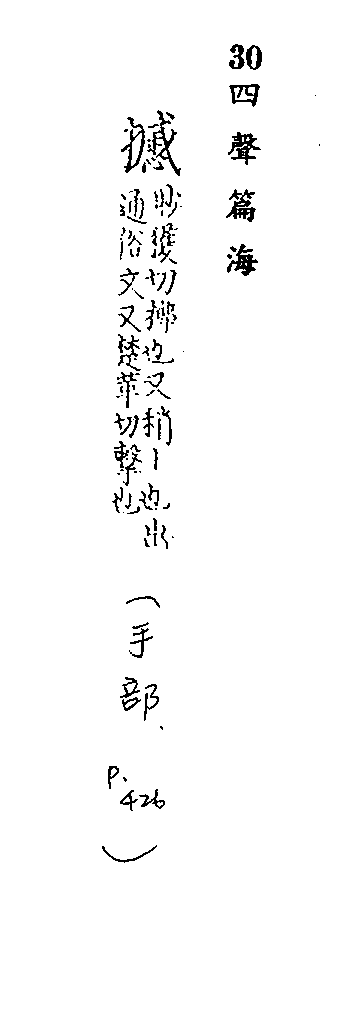 30 四聲篇海
撼
砂獲切揤也又捎丨也出
通俗文又楚革切擊也
(手部、
P.426)